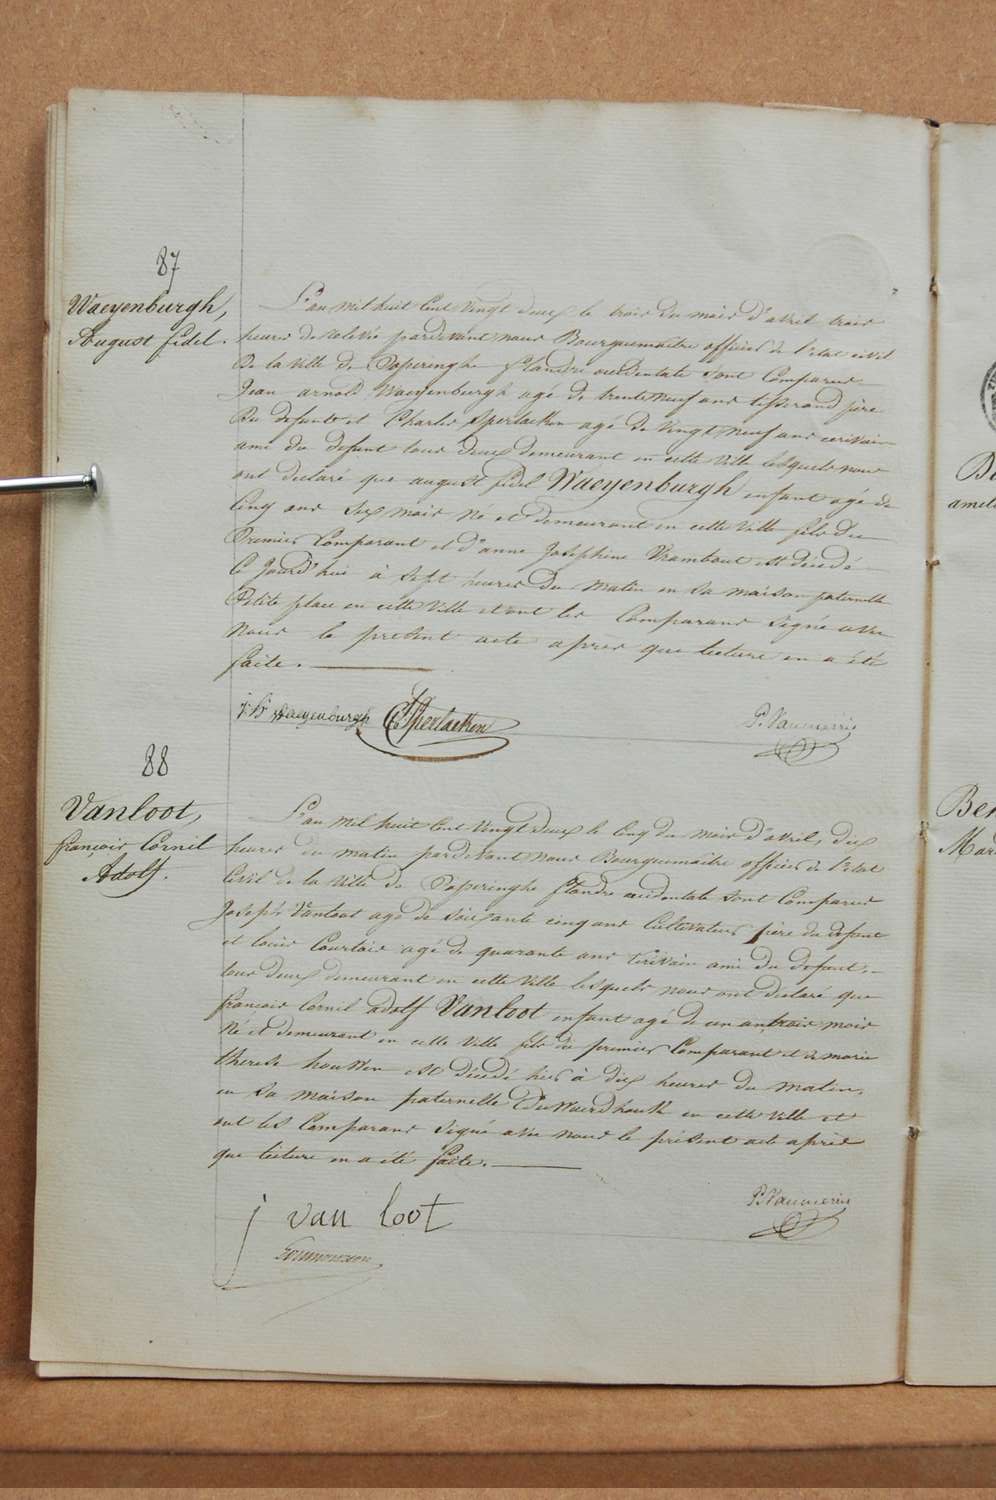 87
Waeyenburgh,
August fidel.
L'an mil huit Cent Vingt deux le trois du mois d'avril trois
heures de relevée pardevant nous Bourguemaitre officier de l'etat civil
De la ville de Poperinghe flandre occidentale sont Comparus
Jean arnold Waeyenburgh agé de trente neuf ans tisserand père
Du defunt et Charles Sperlaeken agé de Vingt neuf ans ecrivain
ami du defunt tous deux demeurant en cette Ville lesquels nous
ont declaré que august fidel Waeyenburgh enfant agé de
Cinq ans six mois né et demeurant en cette Ville fils du
Premier Comparant et d'anne Josephine Vrambout est décédé
Ce Jourd'hui à sept heures du matin en sa maison paternelle
Petite place en cette Ville et ont les Comparans Signé avec
Nous le present acte aprés que lecture en a été
faite.
Waeyenburgh Ch Sperlaeken
88
Vanloot,
françois Cornil
Adolf.
L'an mil huit Cent Vingt deux le Cinq du mois d'avril, dix
heures du matin pardevant nous Bourguemaitre officier de l'etat
Civil de la Ville de Poperinghe flandre occidentale sont Comparus
Joseph Vanloot agé de soixante cinq ans Cultivateur père du defunt
et louis Courtois agé de quarante ans Ecrivain ami du defunt,
tous deux demeurant en cette Ville lesquels nous ont declaré que
françois Cornil adolf Vanloot enfant agé de un an trois mois
Né et demeurant en cette Ville fils du premier Comparant et de marie
therese houwen est décédé hier à dix heures du matin,
en sa maison paternelle en cette Ville et
ont les Comparans Signé avec nous le présent acte aprés
que lecture en a été faite.
j van loot